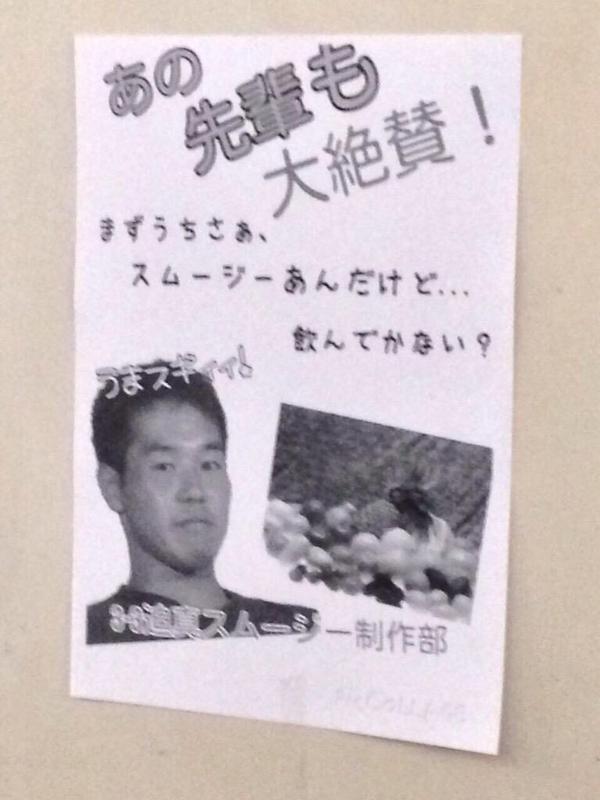 あの
先輩も
大絶賛！
まずうちさぁ、
スムージーあんだけど...
飲んでかない？
うまスギィィ!
3-3迫真スムージー制作部